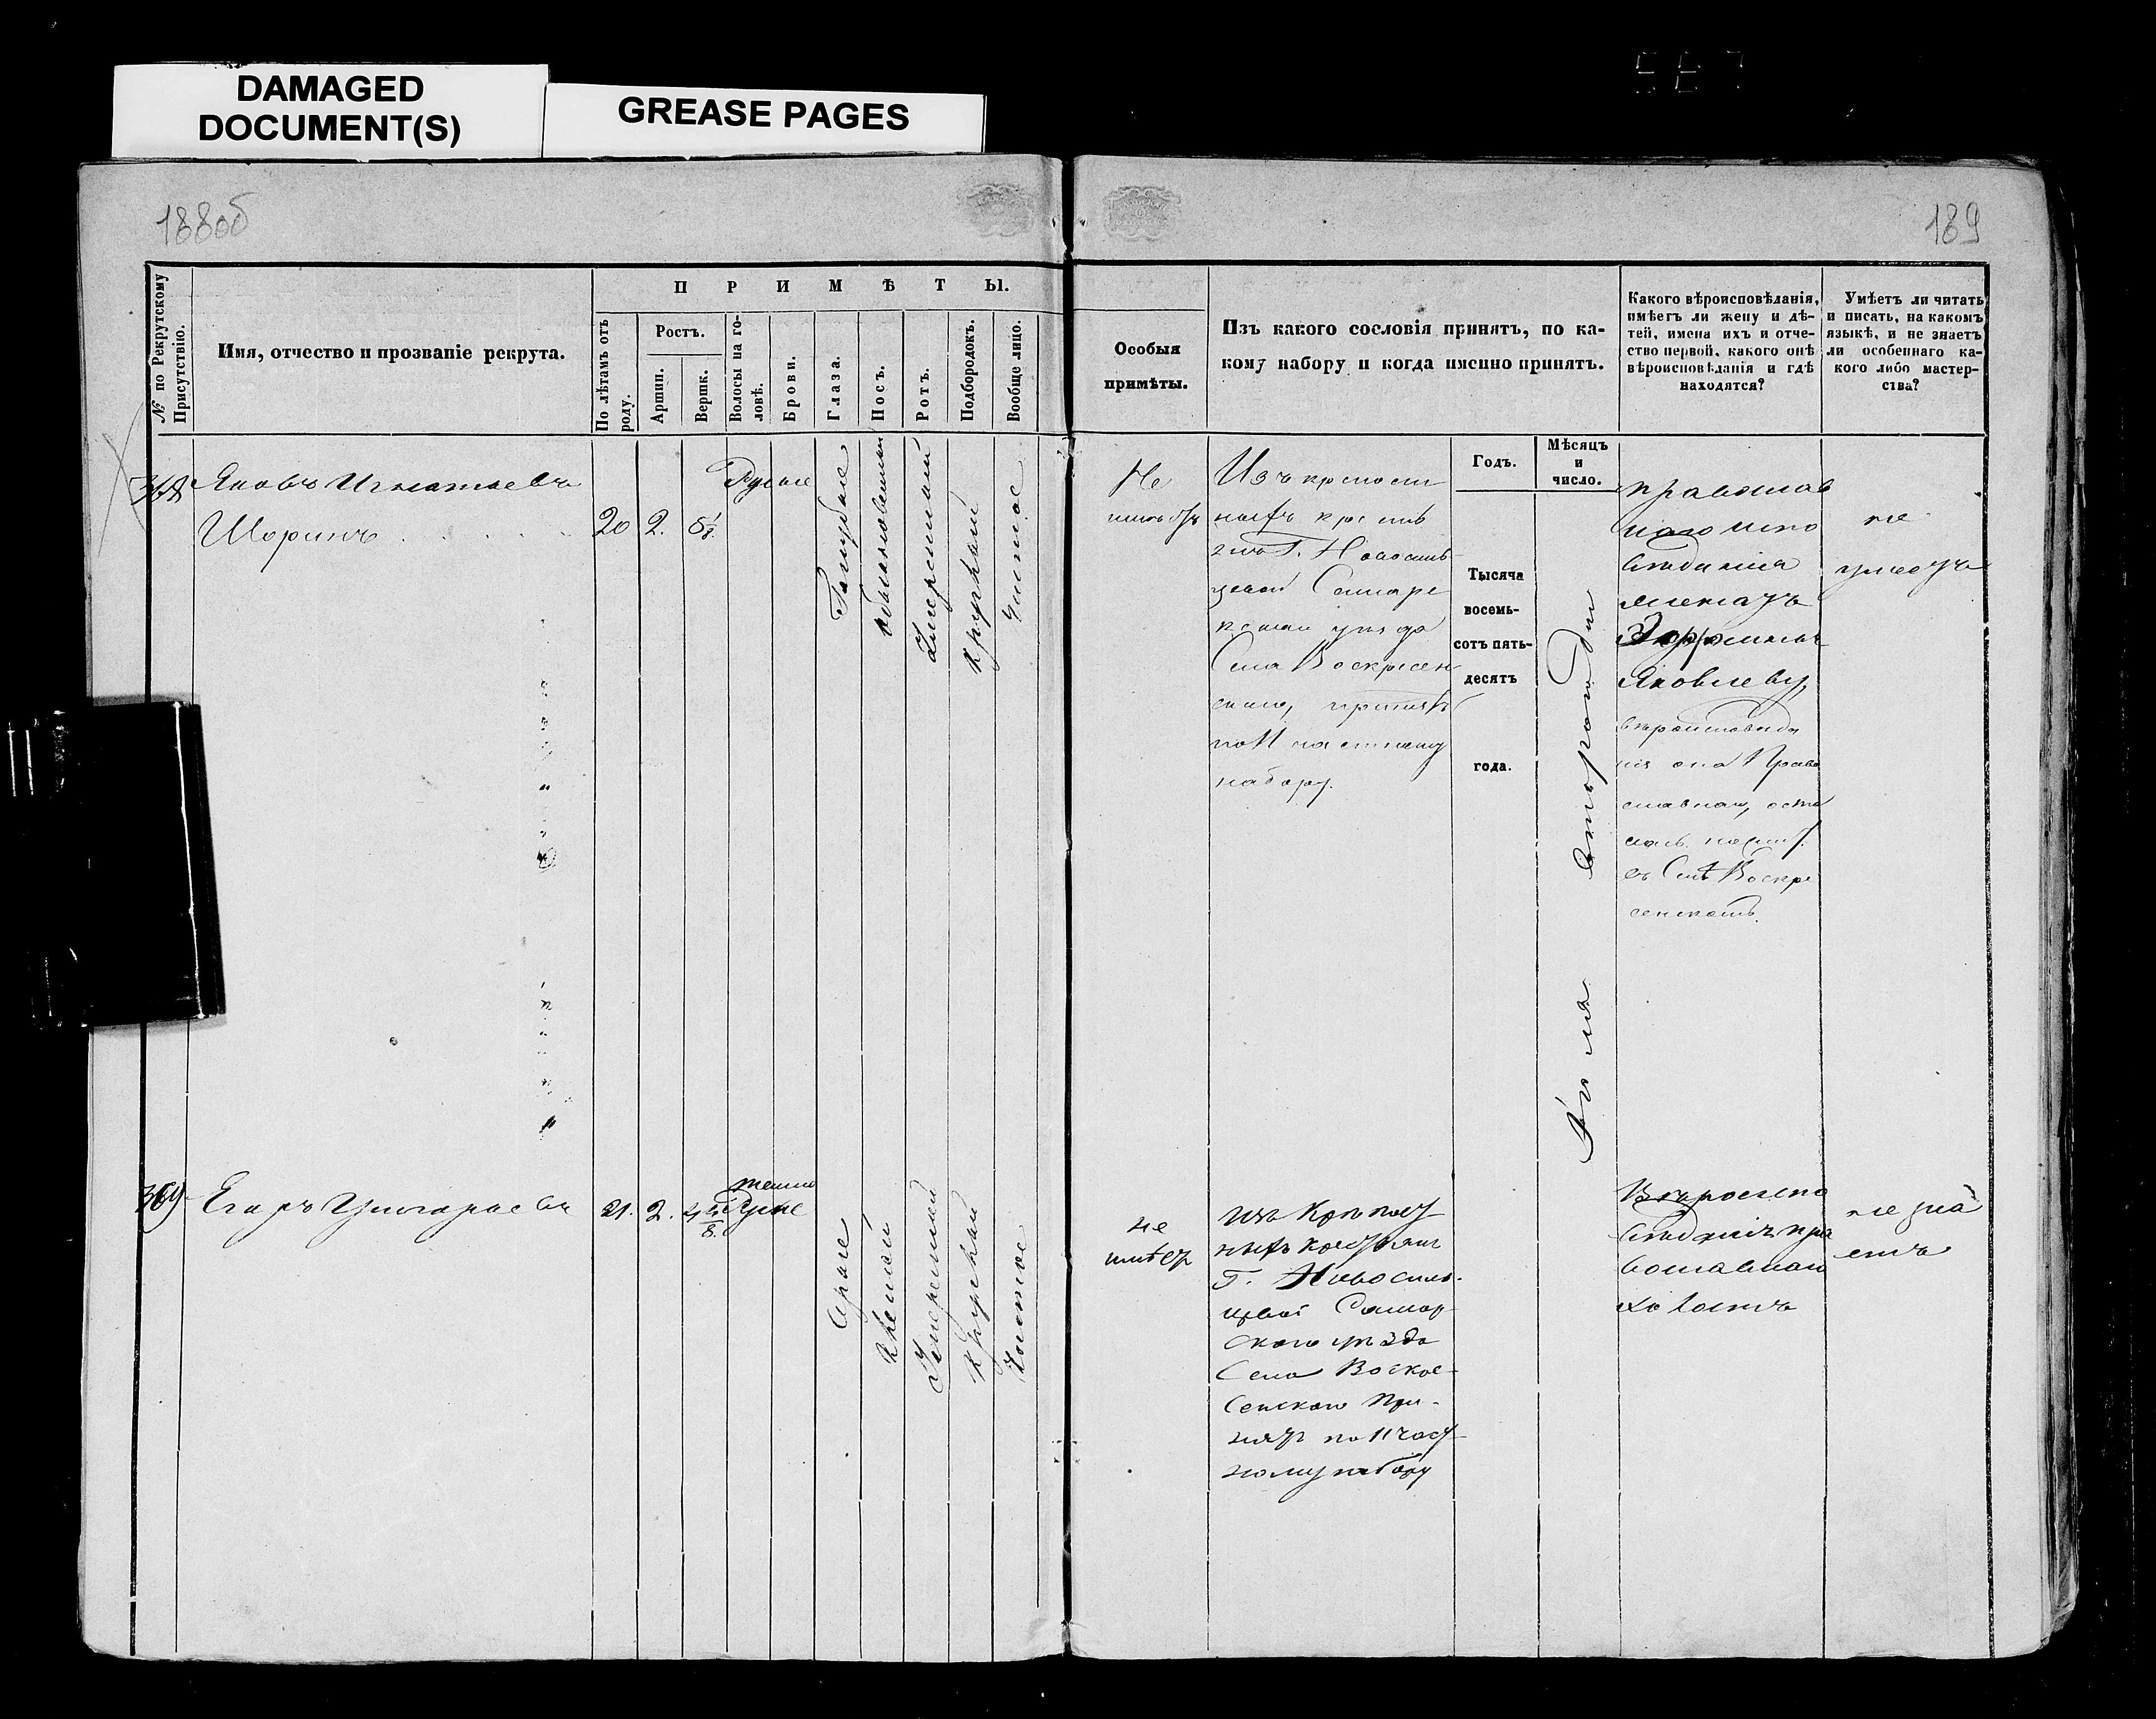 DAMAGED
DOCUMENT(S)
GREASE PAGES
188об
189
№ по Рекрутскому
Присутствію.
Имя, отчество и прозваніе рекрута.
ПРИМѢТЫ.
По лѣтамъ отъ
роду.
Ростъ.
Аршин.
Вершк.
Волосы на го-
ловѣ.
Брови.
Глаза.
Носъ.
Ротъ.
Подбородокъ.
Вообще лицо.
Особыя
примѣты.
Изъ какого сословія принятъ, по ка-
кому набору и когда именно принятъ.
Какого вѣроисповѣданія,
имѣетъ ли жену и дѣ-
тей, имена ихъ и отче-
ство первой, какого онѣ
вѣроисповѣданія и гдѣ
находятся?
Умѣетъ ли читать
и писать, на какомъ
языкѣ, и не знаетъ
ли особеннаго ка-
кого либо мастер-
ства?
Годъ.
Мѣсяцъ
и
число.
368
Яковъ Игнатьевъ
Шоринъ
20
2.
Русые
Голубые
обыкновенный
Умеренный
круглый
чистое
Не
имѣетъ
Изъ крепост
ныхъ крестъ
Г. Новосиль
цевой Самарс
каго уезда
Села Воскресен
скаго, принятъ
по 11 частному
набору.
Тысяча
восемь-
сотъ пять-
десятъ
года.
Іюля второго дня
православ
наго испо
веданія
женатъ
Яковлеву,
вероисповеда
нія она Право
славная, оста
лась
въ Селѣ Воскре
сенскомъ.
не
умеетъ
369
Егоръ Григорьевъ
21.
2.
темно
Русые
Серые
Умеренный
круглый
Чистое
не
имѣетъ
изъ Крепост
ныхъ крестьянъ
Г. Новосиль-
цевой Самар
скаго уезда
Села Воскре-
сенскаго При-
нятъ по 11 част
ному набору
Вероиспо
веданія пра
вославнаго
холостъ
не зна
етъ